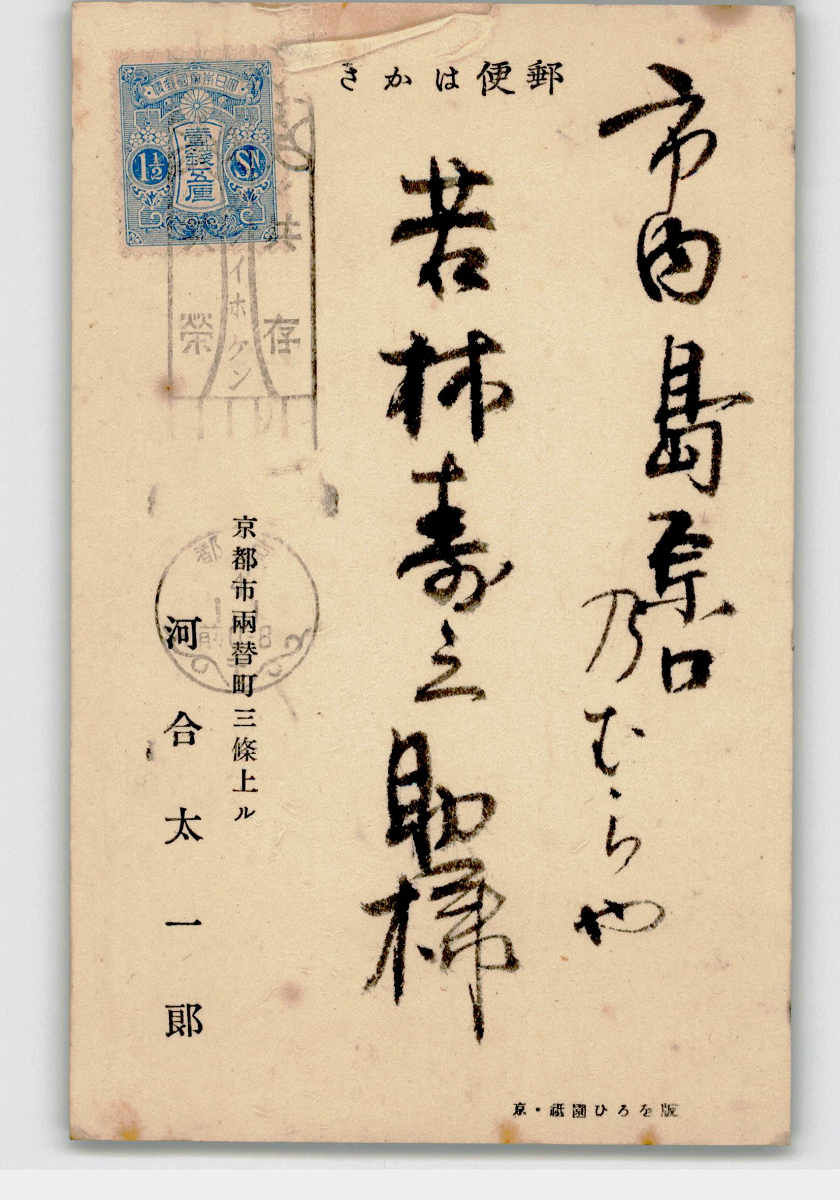 郵便はかき
市内島原口
乃むらや
若林寿之助様
大日本帝國郵便
壹錢五厘
1½ SN
共存
共榮
カンイホケン
京都
前0-8
京都市兩替町三條上ル
河合太一郎
京・祇園ひろを版